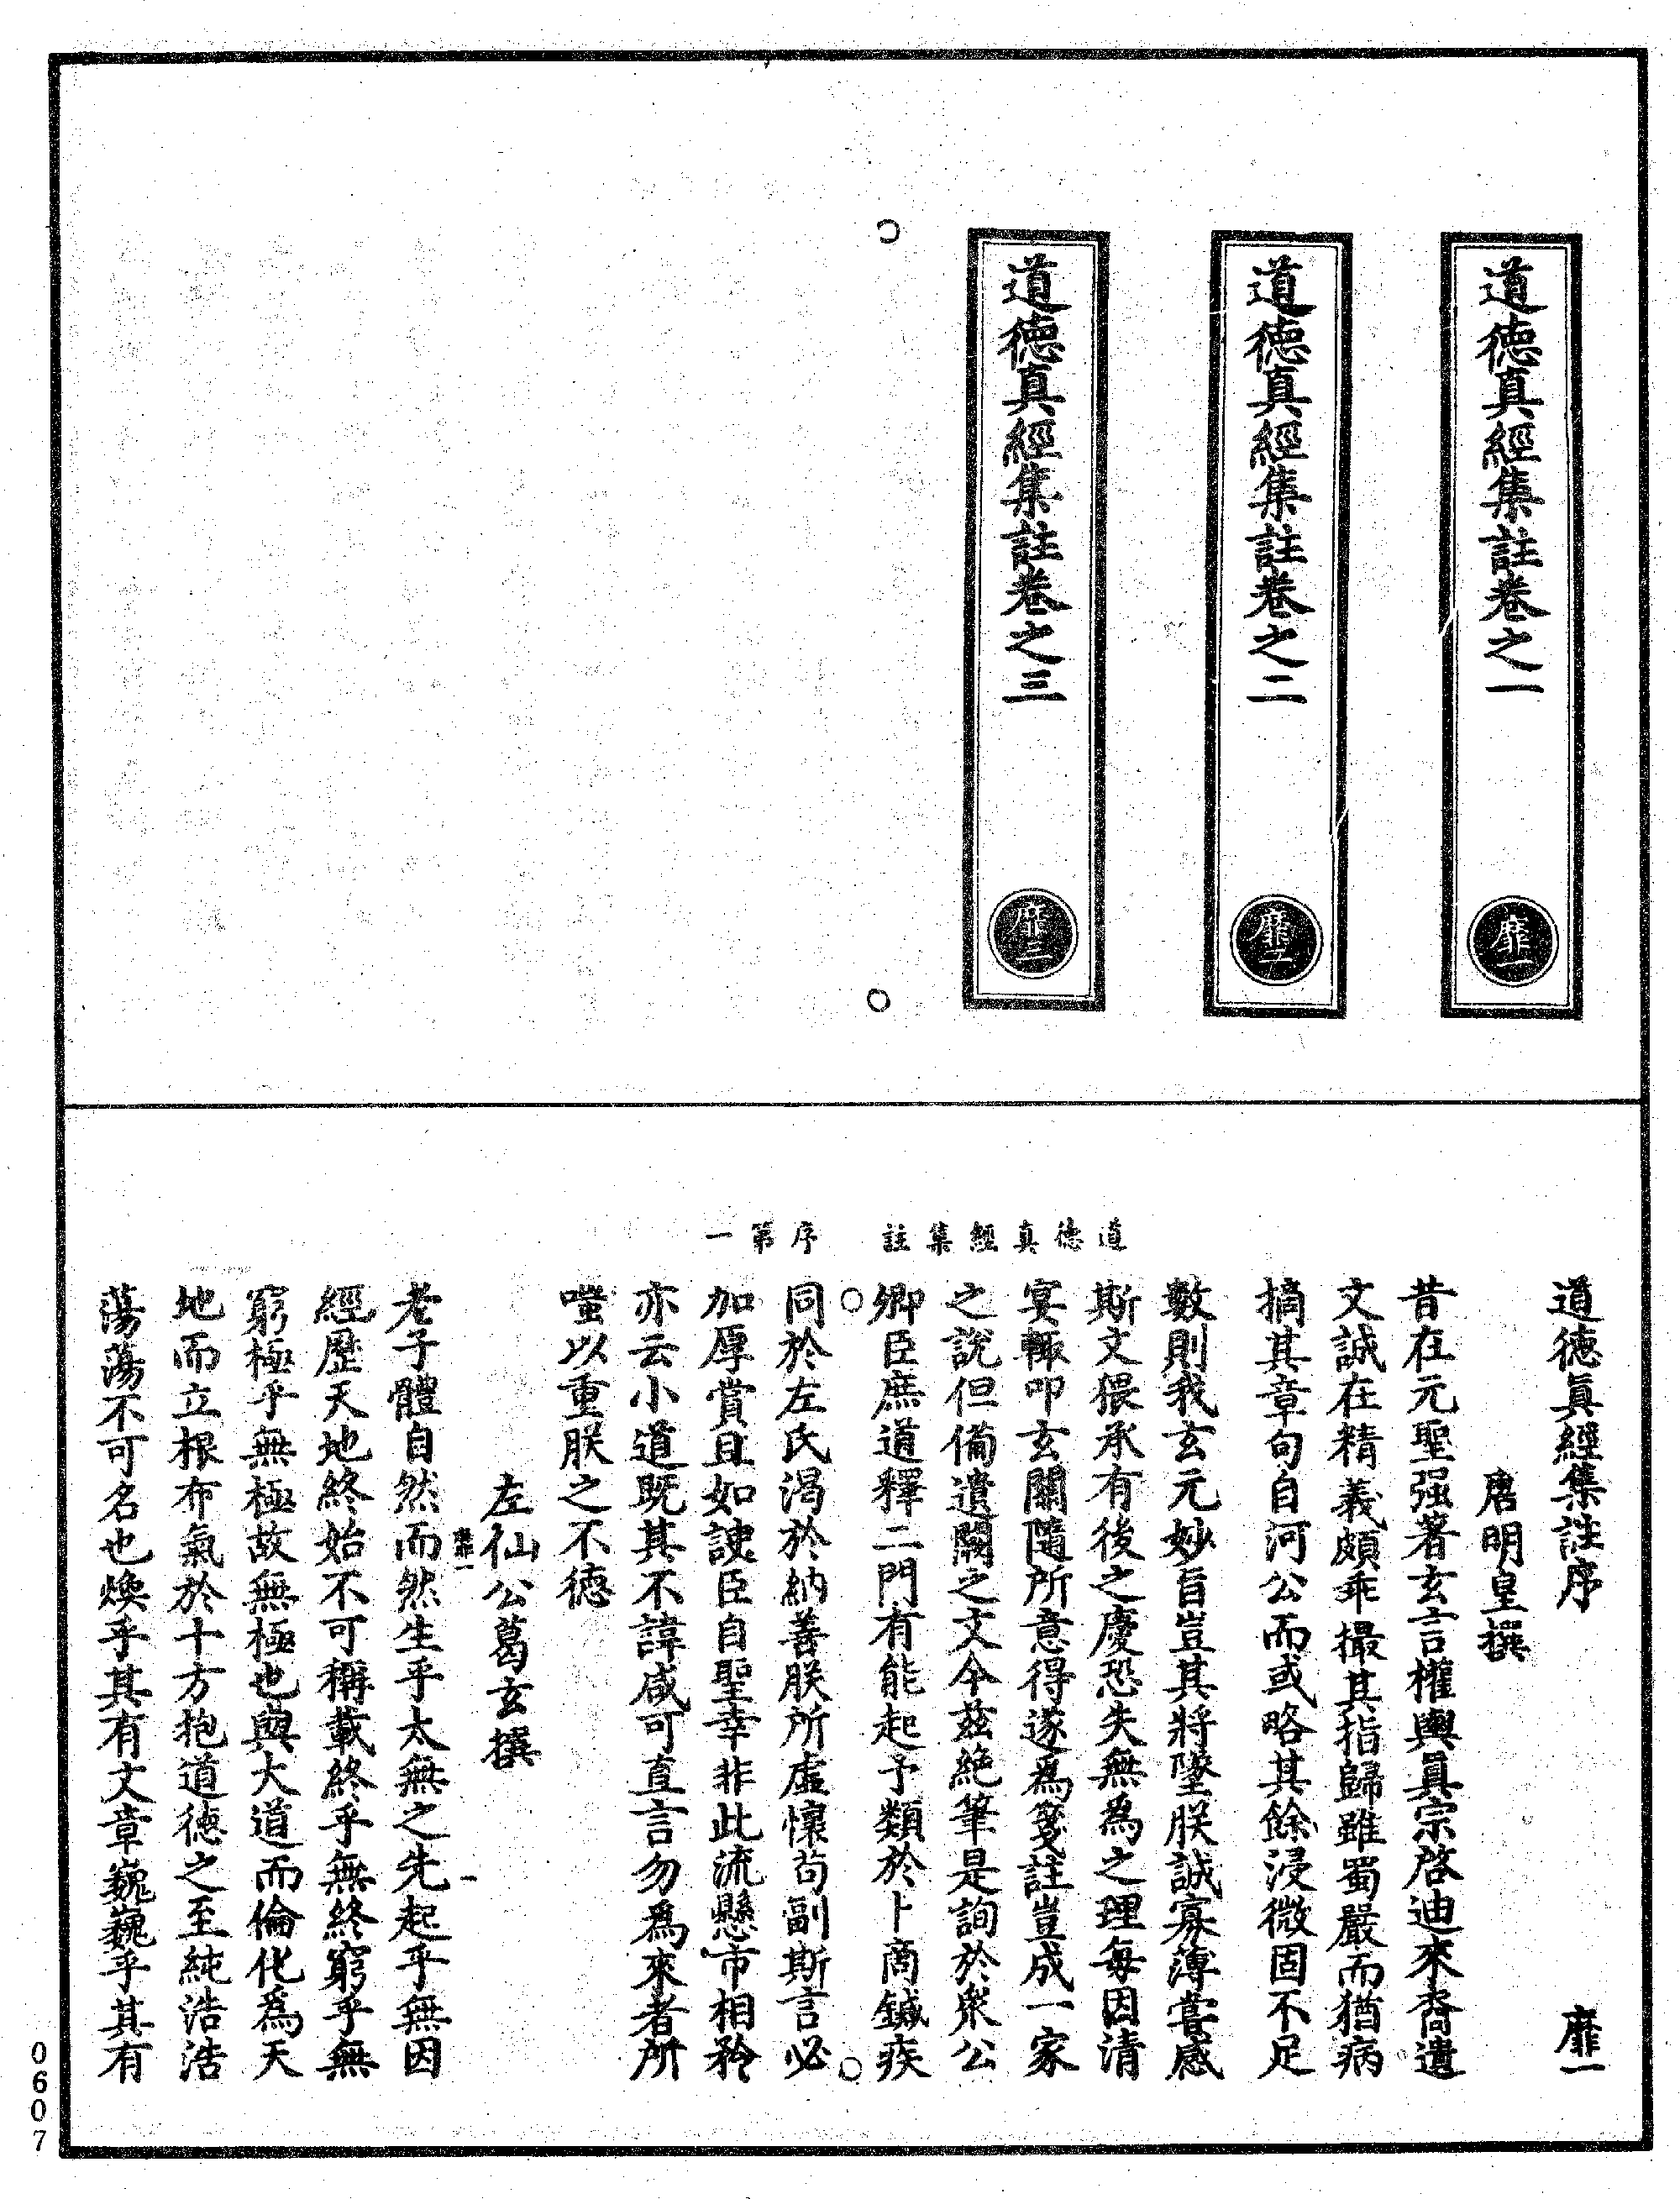 道德真經集註卷之一
靡一
道德真經集註卷之二
靡二
道德真經集註卷之三
靡三
道德真經集註　序第一
道德眞經集註序　靡一
唐明皇撰
昔在元聖强著玄言權輿眞宗啓迪來裔遺
文誠在精義頗乖撮其指歸雖蜀嚴而猶病
摘其章句自河公而或略其餘浸微固不足
數則我玄元妙旨豈其將墜朕誠寡薄嘗感
斯文猥承有後之慶恐失無為之理每因清
宴輒叩玄關隨所意得遂為箋註豈成一家
之說但備遺闕之文今兹絶筆是詢於衆公
卿臣庶道釋二門有能起予類於卜商鍼疾
同於左氏渴於納善朕所虛懷苟副斯言必
加厚賞且如諛臣自聖幸非此流懸市相矜
亦云小道既其不諱咸可直言勿爲來者所
嗤以重朕之不德
左仙公葛玄撰
靡一
一
老子體自然而然生乎太無之先起乎無因
經歷天地終始不可稱載終乎無終窮乎無
窮極乎無極故無極也與大道而倫化為天
地而立根布氣於十方抱道德之至純浩浩
蕩蕩不可名也煥乎其有文章巍巍乎其有
0607